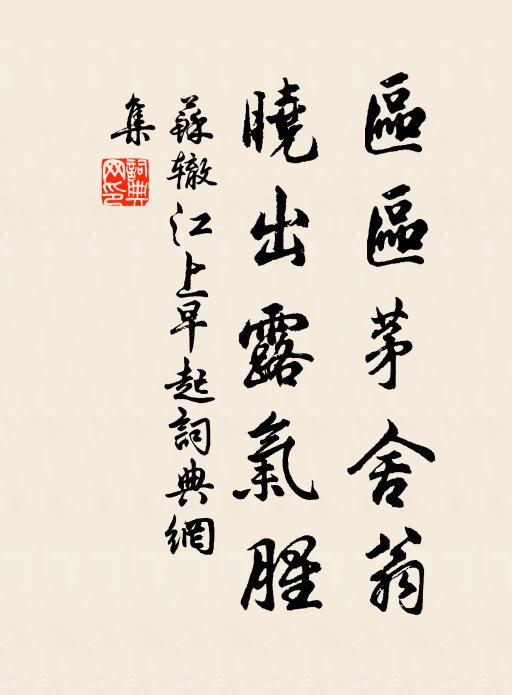 區區茅舍翁
曉出露氣腥
蘇辙江上早起詞典網
集
詞典
网印